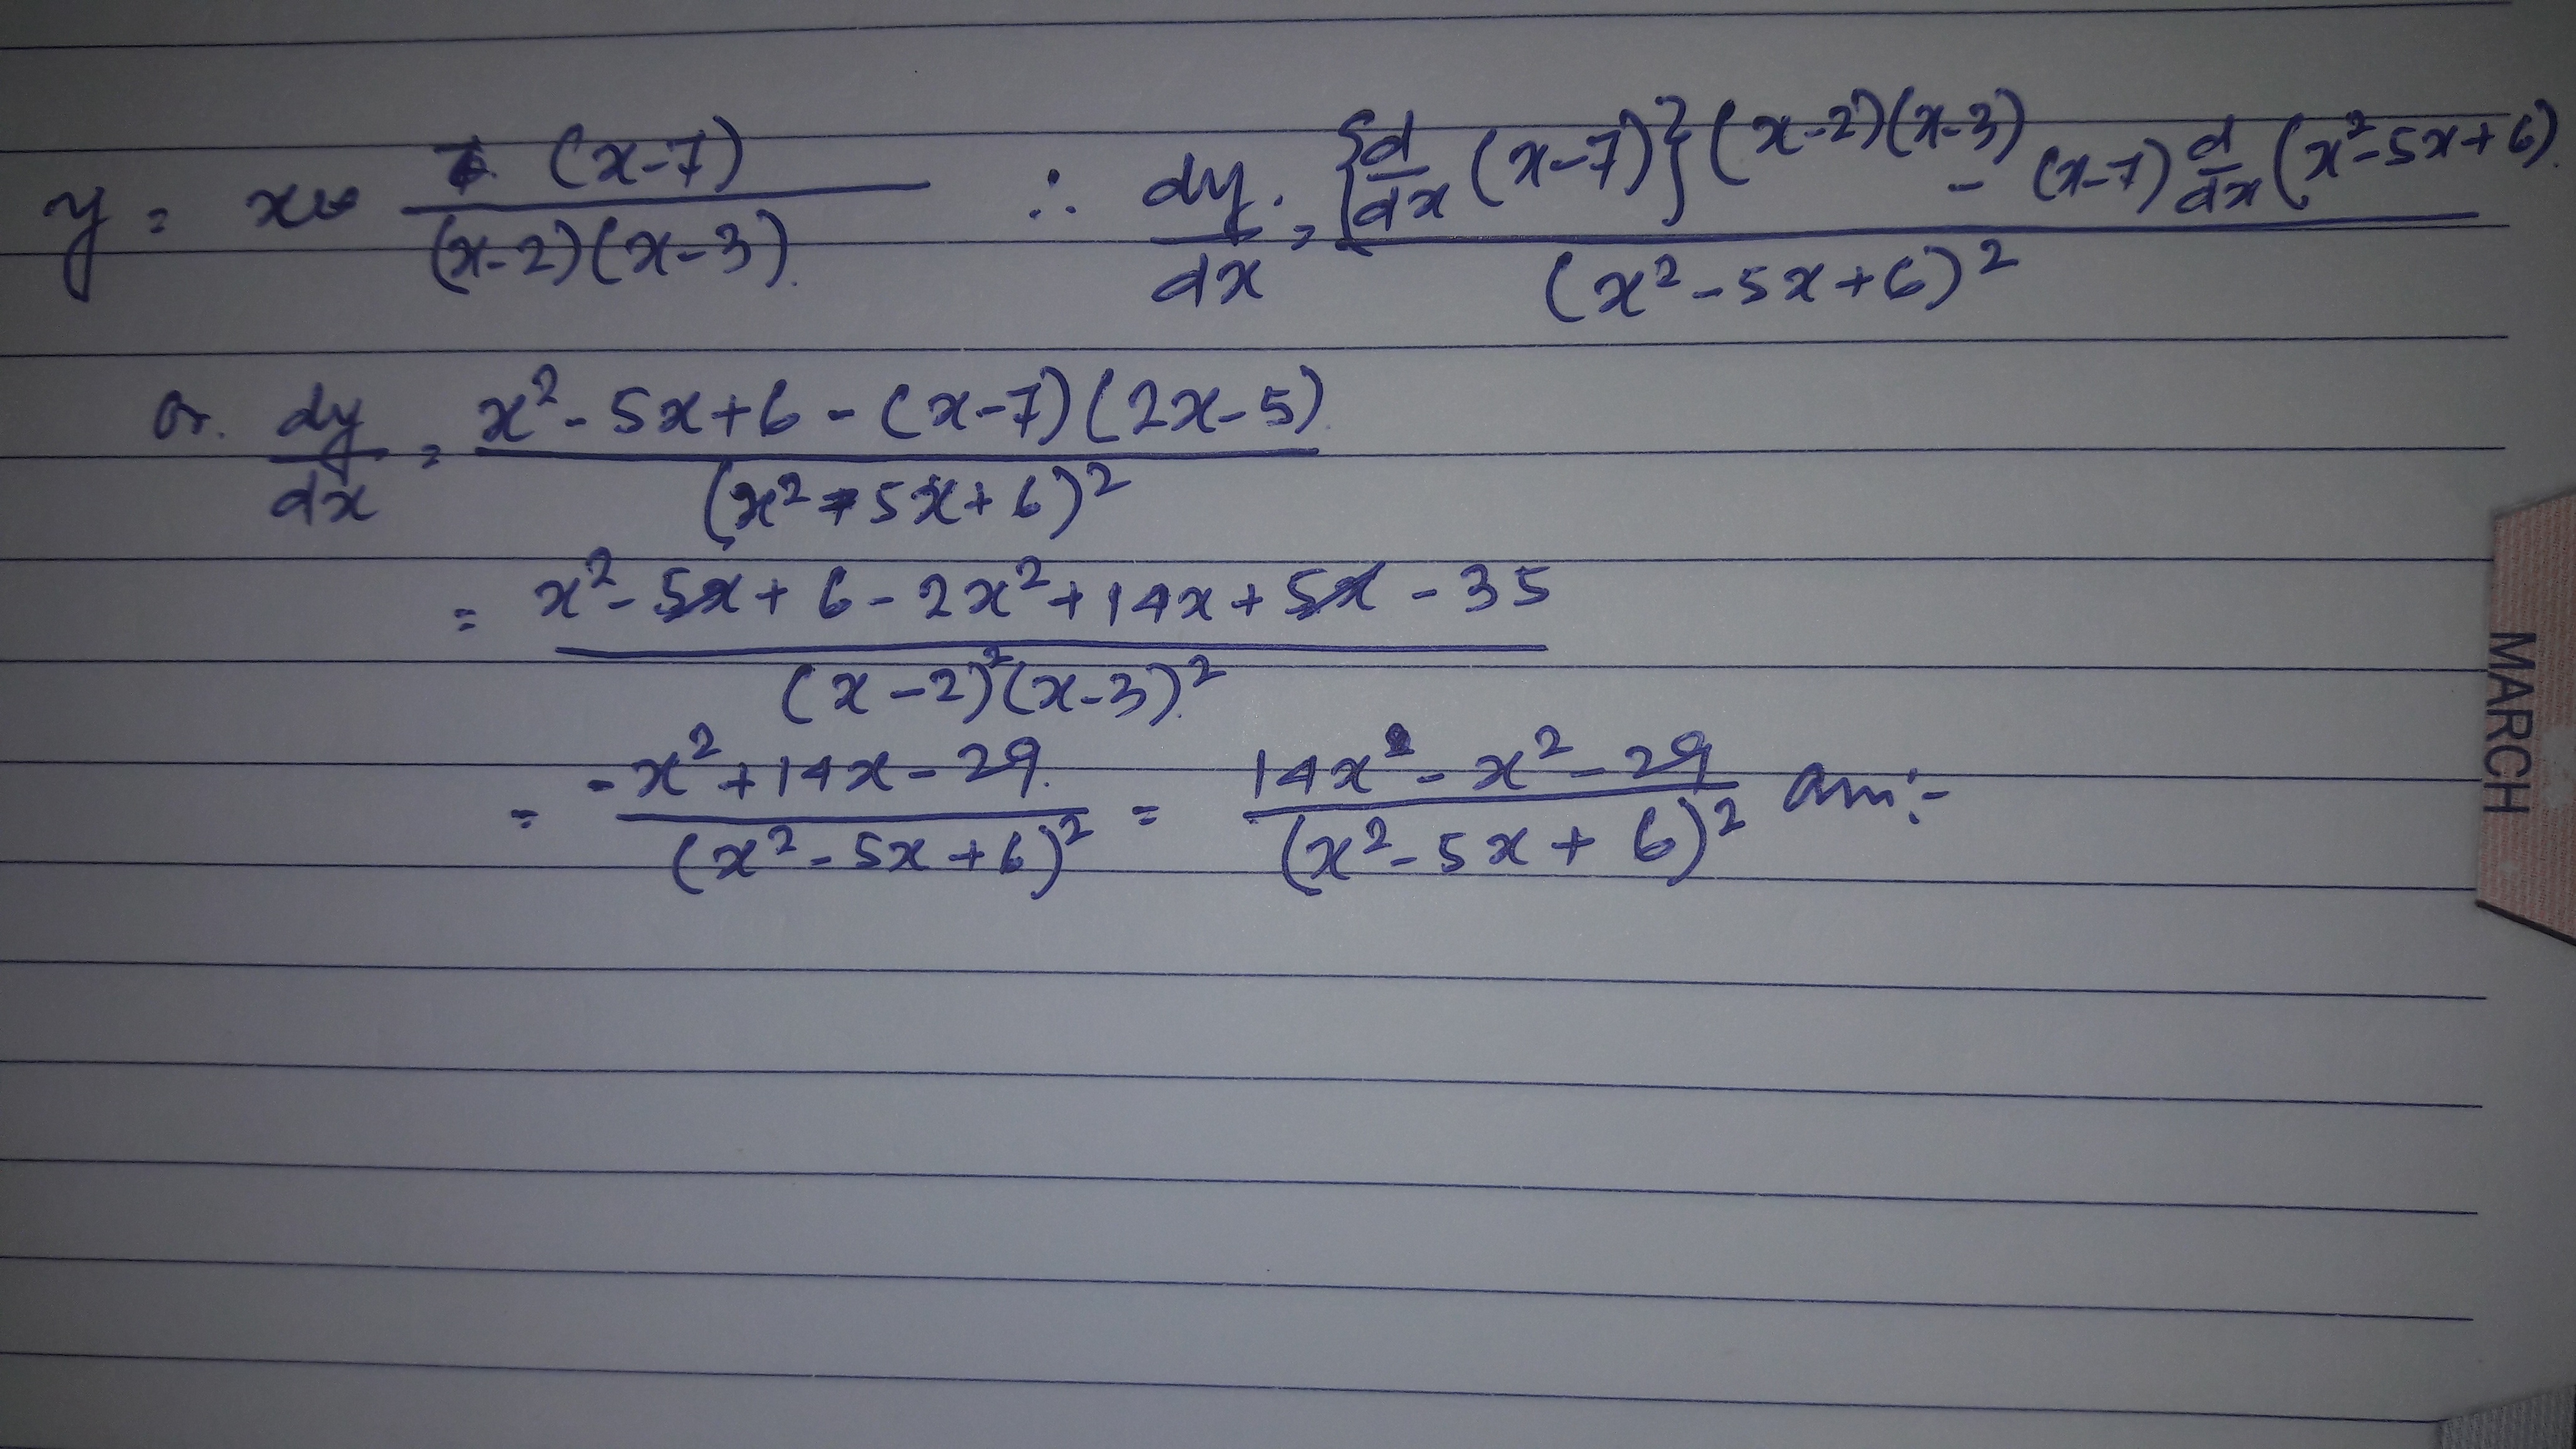 y = x (x-7) / (x-2)(x-3). ∴ dy/dx = {d/dx (x-7)}(x-2)(x-3) - (x-7) d/dx (x²-5x+6). / (x²-5x+6)²
Or. dy/dx = x²-5x+6-(x-7)(2x-5). / (x²-5x+6)²
= x²-5x+6-2x²+14x+5x-35 / (x-2)²(x-3)².
= -x²+14x-29. / (x²-5x+6)² = 14x-x²-29 / (x²-5x+6)² ans:-
MARCH